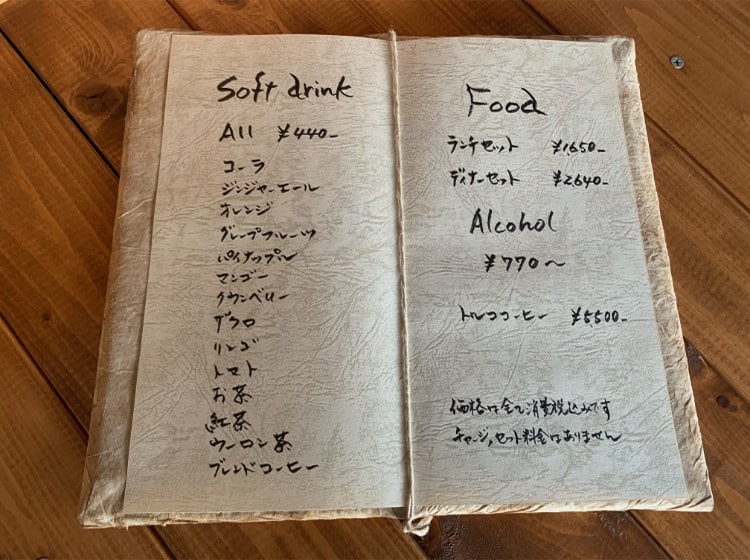 Soft drink
All ¥440-
コーラ
ジンジャーエール
オレンジ
グレープフルーツ
パイナップル
マンゴー
クランベリー
ザクロ
リンゴ
トマト
お茶
紅茶
ウーロン茶
ブレンドコーヒー
Food
ランチセット ¥1,650-
ディナーセット ¥2,640-
Alcohol
¥770〜
トルココーヒー ¥5,500-
価格は全て消費税込みです
チャージ,セット料金はありません